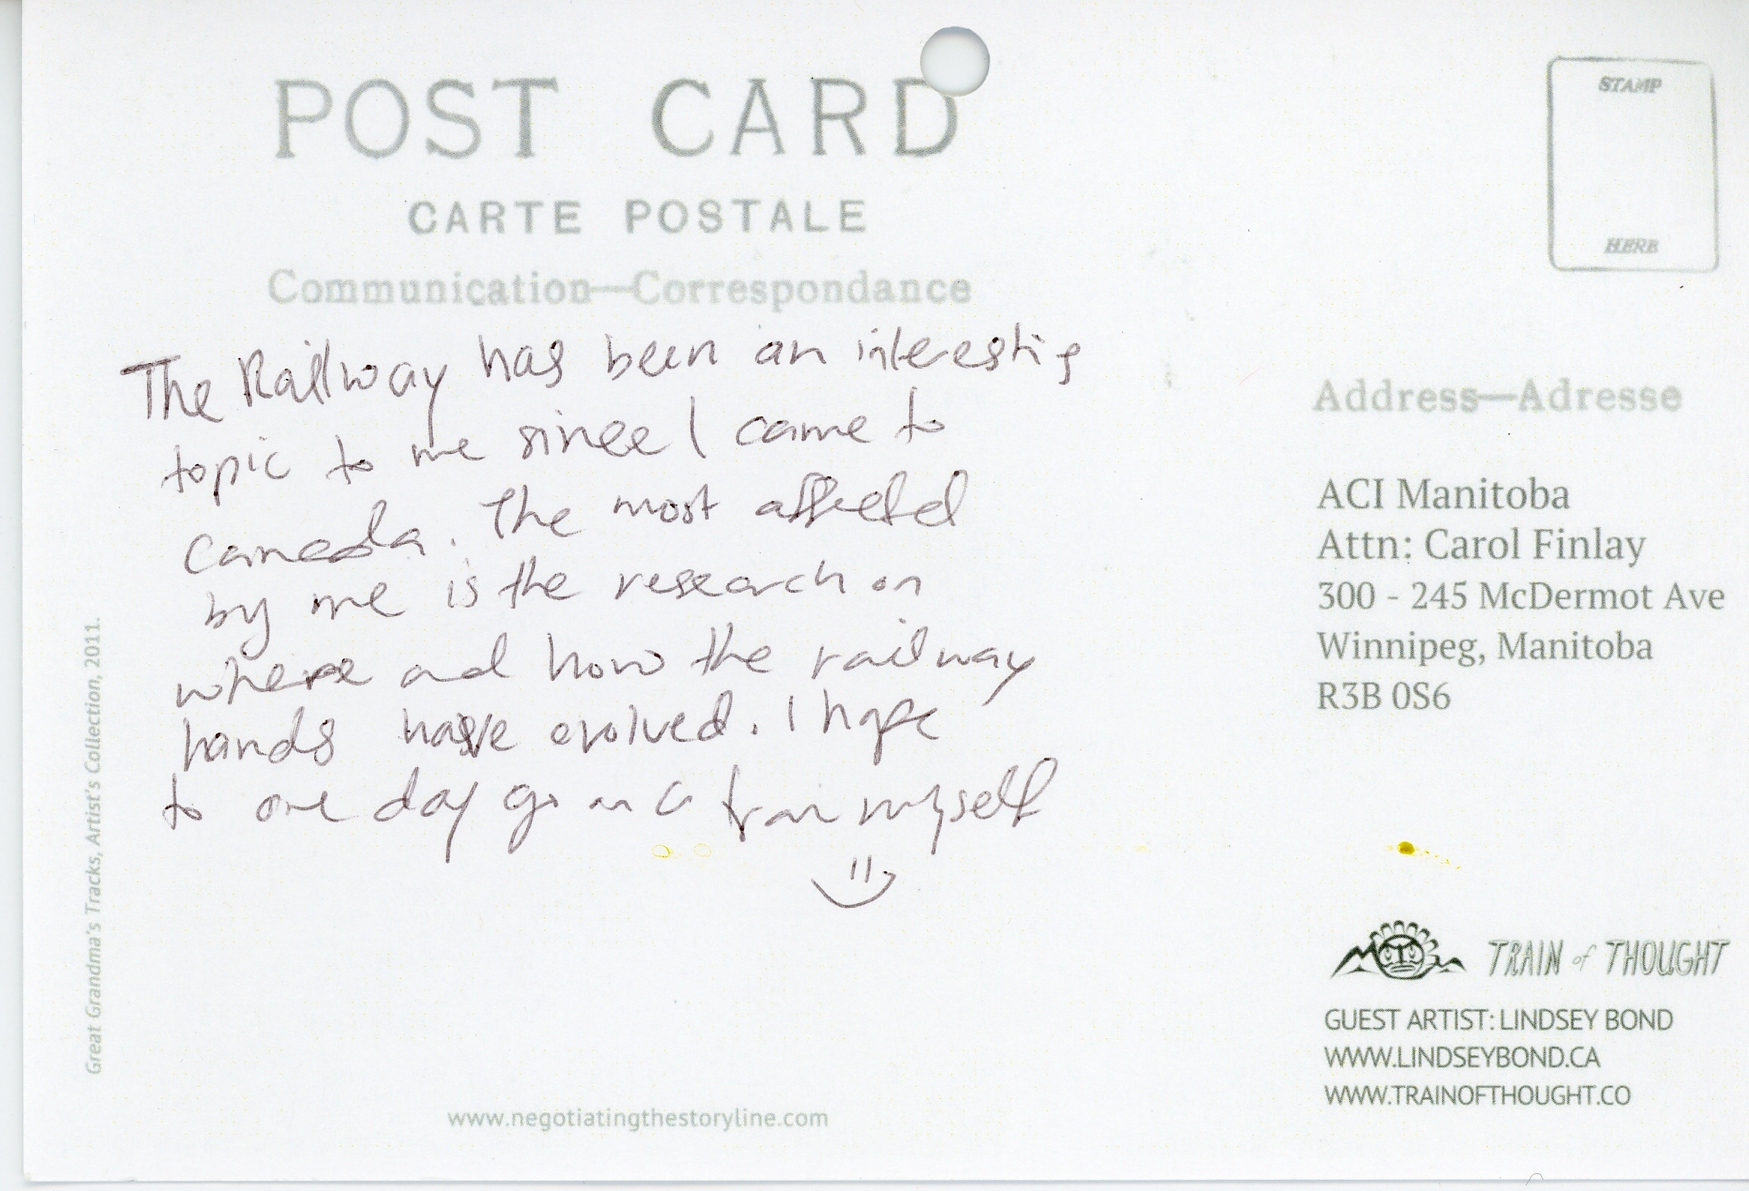 POST CARD
CARTE POSTALE
Communication—Correspondance
STAMP
HERE
The Railway has been an interesting
topic to me since I came to
Canada. The most affected
by me is the research on
where and how the railway
hands have evolved. I hope
to one day go on a train myself
Address—Adresse
ACI Manitoba
Attn: Carol Finlay
300 - 245 McDermot Ave
Winnipeg, Manitoba
R3B 0S6
TRAIN of THOUGHT
GUEST ARTIST: LINDSEY BOND
WWW.LINDSEYBOND.CA
WWW.TRAINOFTHOUGHT.CO
Great Grandma's Tracks, Artist's Collection, 2011.
www.negotiatingthestoryline.com